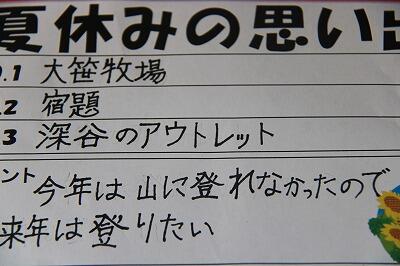 夏休みの思い出
0.1 大笹牧場
.2 宿題
3 深谷のアウトレット
ント 今年は山に登れなかったので
来年は登りたい